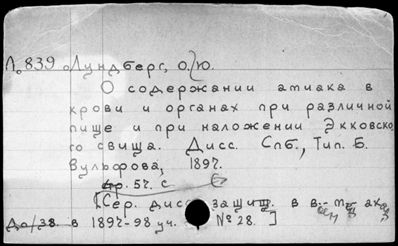 Л. 839 Лундберг, О. Ю.
О содержании амиака в
крови и органах при различной
пище и при наложении Экковско-
го свища. Дисс. Спб., Тип. Б.
Вульфова, 1897.
57. с
[Сер. дисс. защищ. в
До/38. в 1897-98 уч. № 28.]